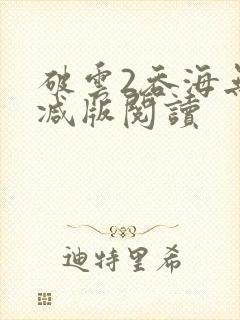 破雲2吞海無
減版閱讀
迪特里希